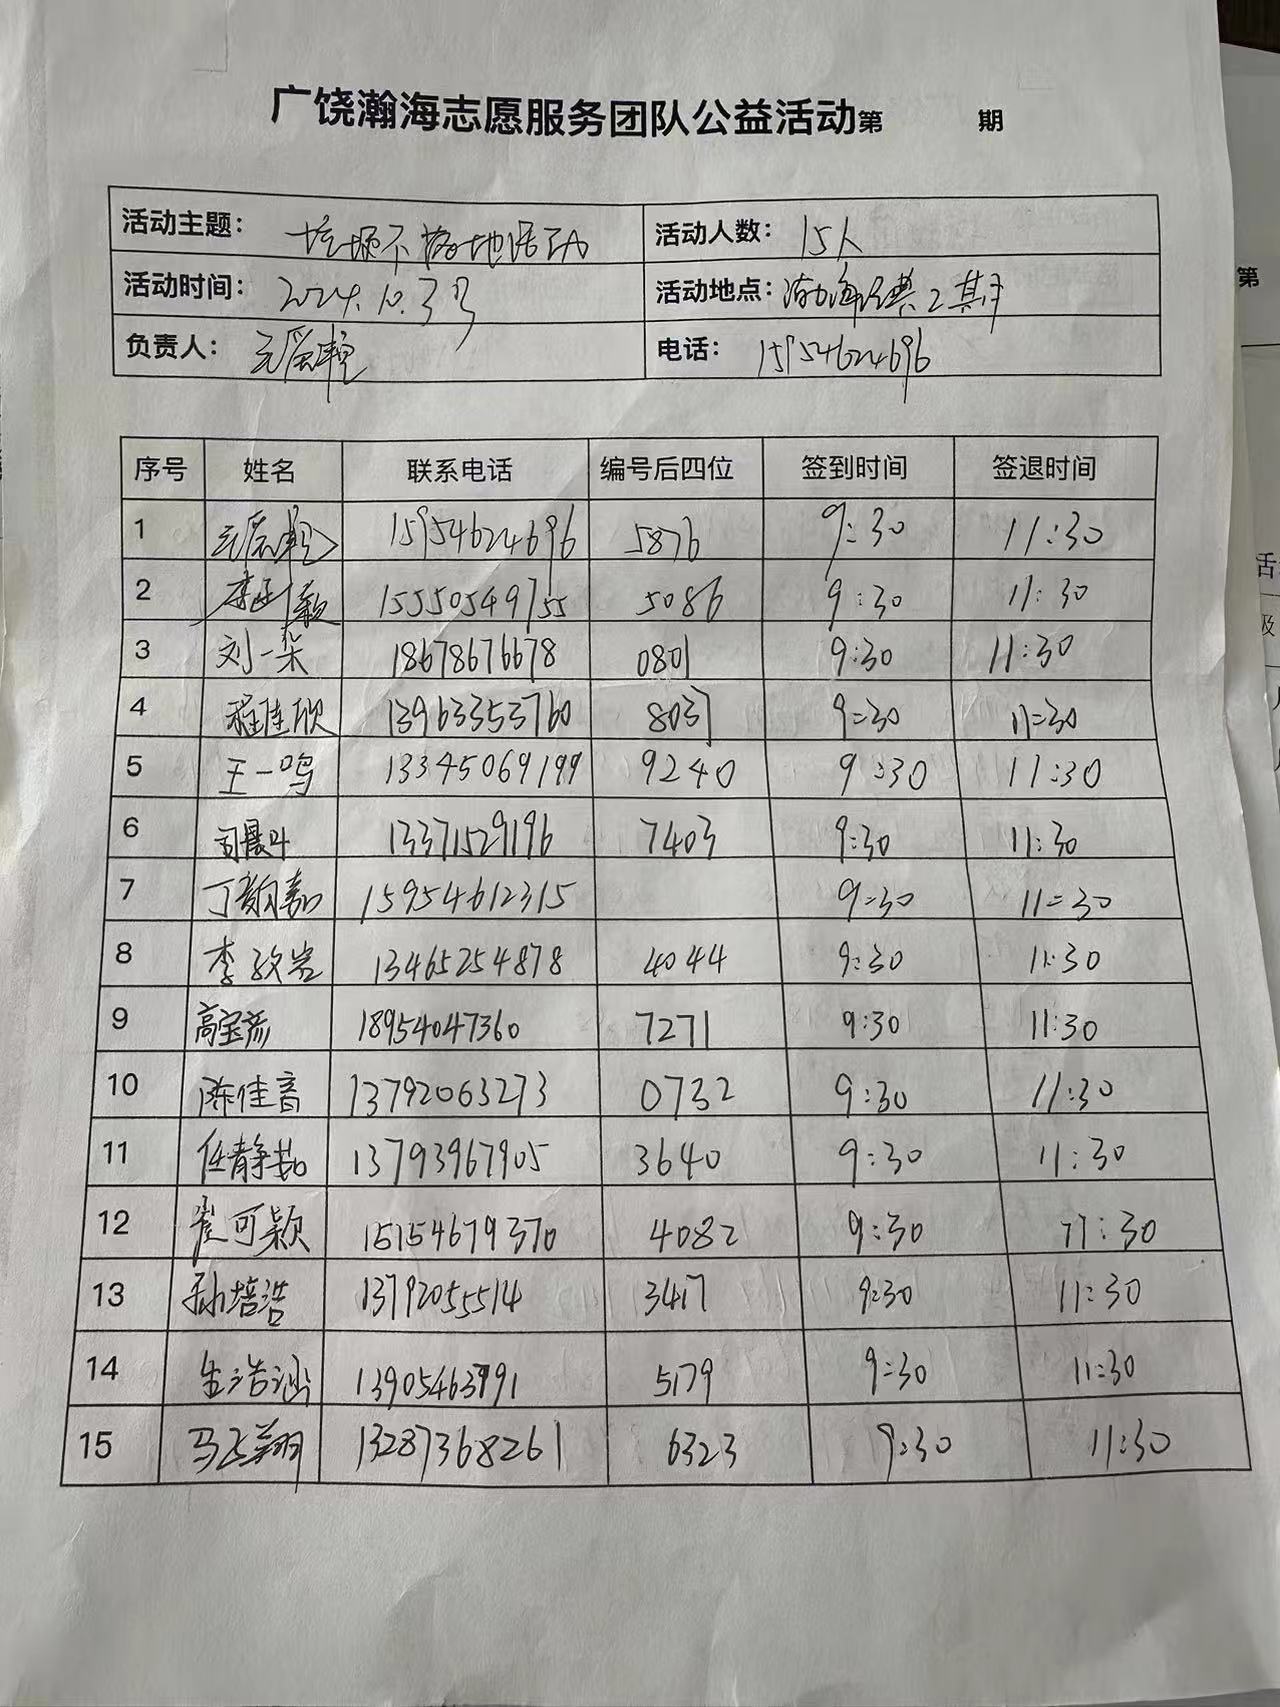 广饶瀚海志愿服务团队公益活动第 期
活动主题: 垃圾不落地活动 活动人数: 15人
活动时间: 2024.10.3号 活动地点: 渤海经典2期
负责人: 电话: 15954624696
序号 姓名 联系电话 编号后四位 签到时间 签退时间
1 15954624696 5876 9:30 11:30
2 15550549755 5086 9:30 11:30
3 刘一朵 18678676678 0801 9:30 11:30
4 程佳欣 13963353760 8037 9:30 11:30
5 王一鸣 13345069199 9240 9:30 11:30
6 13371529196 7403 9:30 11:30
7 丁韵嘉 15954612315 9:30 11:30
8 李政岩 13465254878 4044 9:30 11:30
9 高宝彦 18954047360 7271 9:30 11:30
10 陈佳音 13792063273 0732 9:30 11:30
11 任静茹 13793967905 3640 9:30 11:30
12 崔可颖 15154679370 4082 9:30 11:30
13 孙培浩 13792055514 3417 9:30 11:30
14 生浩涵 5179 9:30 11:30
15 马飞翔 13287368261 6323 9:30 11:30
第